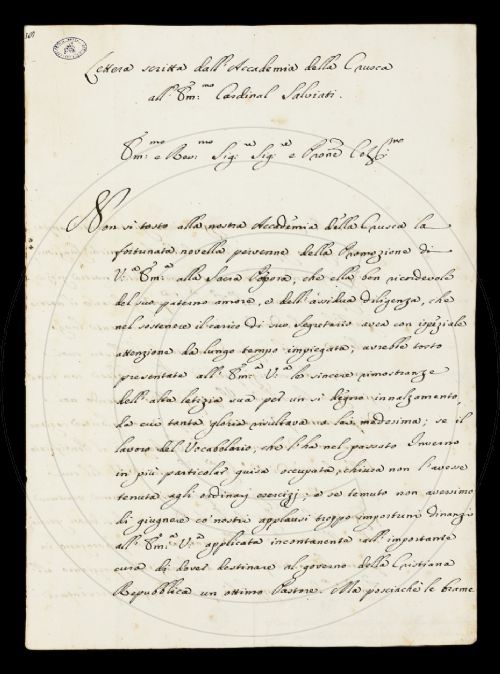 Lettera scritta dall'Accademia della Crusca
all'Em:mo Cardinal Salviati.
Em:mo e Rev:mo Sig:re Sig:re e Prone Col:mo
Non si tosto alla nostra Accademia della Crusca la
fortunata novella pervenne della Promozione di
V:a Em:a alla Sacra Porpora, che ella ben ricordevole
del suo paterno amore, e dell'assidua diligenza, che
nel sostenere il carico di suo Segretario avea con ispeziale
attenzione da lungo tempo impiegata, avrebbe tosto
presentate all'Em:a V:a le sincere rimostranze
dell'alta letizia sua per un si degno innalzamento,
da cui tanta gloria risultava a lei medesima; se il
lavoro del Vocabolario, che l'ha nel passato Inverno
in più particolar guisa occupata, chiusa non l'avesse
tenuta agli ordinarj esercizj; e se temuto non avessimo
di giugnere co' nostri applausi troppo importuni dinanzi
all'Em:a V:a applicata incontanente all'importante
cura di dover destinare al governo della Cristiana
Repubblica un ottimo Pastore. Ma posciachè le brame